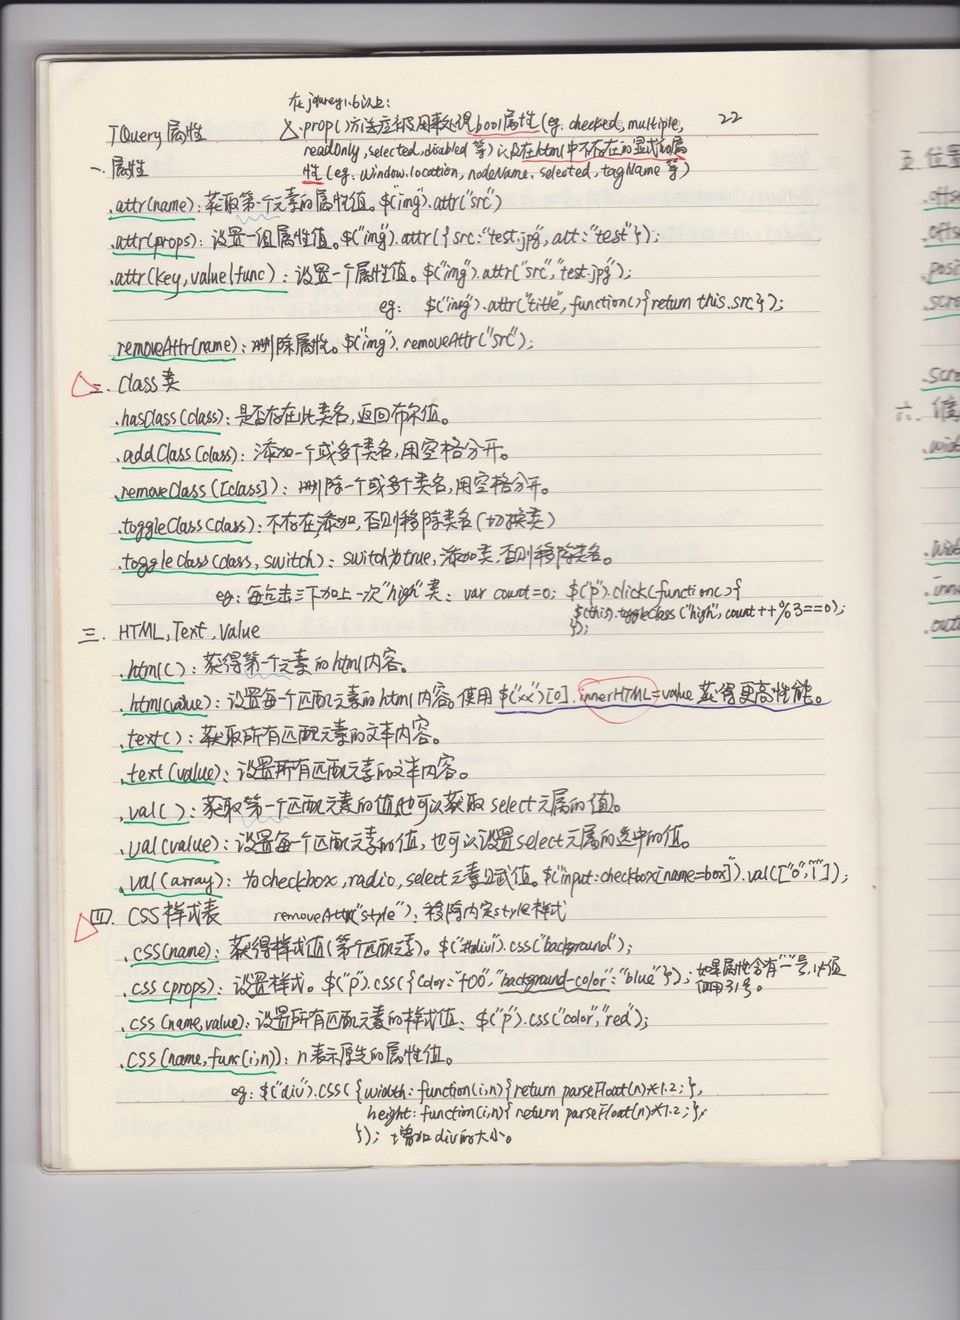 在jquery1.6以上:
JQuery 属性
△.prop()方法应该用来处理bool属性(eg. checked, multiple,
22
readOnly, selected, disabled 等)以及在html中不存在的显式的属
性(eg. window.location, nodeName, selected, tagName 等)
一. 属性
.attr(name): 获取第一个元素的属性值。$("img").attr("src")
.attr(props): 设置一组属性值。$("img").attr({src:"test.jpg", alt:"test"});
.attr(key, value|func): 设置一个属性值。$("img").attr("src","test.jpg");
eg: $("img").attr("title", function(){return this.src});
removeAttr(name): 删除属性。$("img").removeAttr("src");
二. Class类
.hasClass(class): 是否存在此类名,返回布尔值。
.addClass(class): 添加一个或多个类名,用空格分开。
removeClass([class]): 删除一个或多个类名,用空格分开。
.toggleClass(class): 不存在添加,否则移除类名(切换类)
.toggleClass(class, switch): switch为true,添加类,否则移除类名。
eg: 每点击三下加上一次"high"类: var count=0; $("p").click(function(){
$(this).toggleClass("high", count++%3==0);
});
三. HTML, Text, Value
.html(): 获得第一个元素的html内容。
.html(value): 设置每个匹配元素的html内容。使用$("xx")[0].innerHTML=value获得更高性能。
.text(): 获取所有匹配元素的文本内容。
.text(value): 设置所有匹配元素的文本内容。
.val(): 获取第一个匹配元素的值,也可以获取select元属的值。
.val(value): 设置每一个匹配元素的值,也可以设置select元属的选中的值。
.val(array): 为checkbox, radio, select元素赋值。$("input:checkbox[name=box]").val(["0","1"]);
四. CSS样式表
removeAttr("style"): 移除内定style样式
.css(name): 获得样式值(第个匹配元素)。$("#div1").css("background");
.css(props): 设置样式。$("p").css({color:"f00", "background-color":"blue"}); 如果属性含有"-"号,必须
使用引号。
.css(name,value): 设置所有匹配元素的样式值: $("p").css("color","red");
.css(name, func(i,n)): n表示原先的属性值。
eg: $("div").css({width: function(i,n){return parseFloat(n)*1.2;},
height: function(i,n){return parseFloat(n)*1.2;},
}); 增加div的大小。
五. 位置
.posi
六.